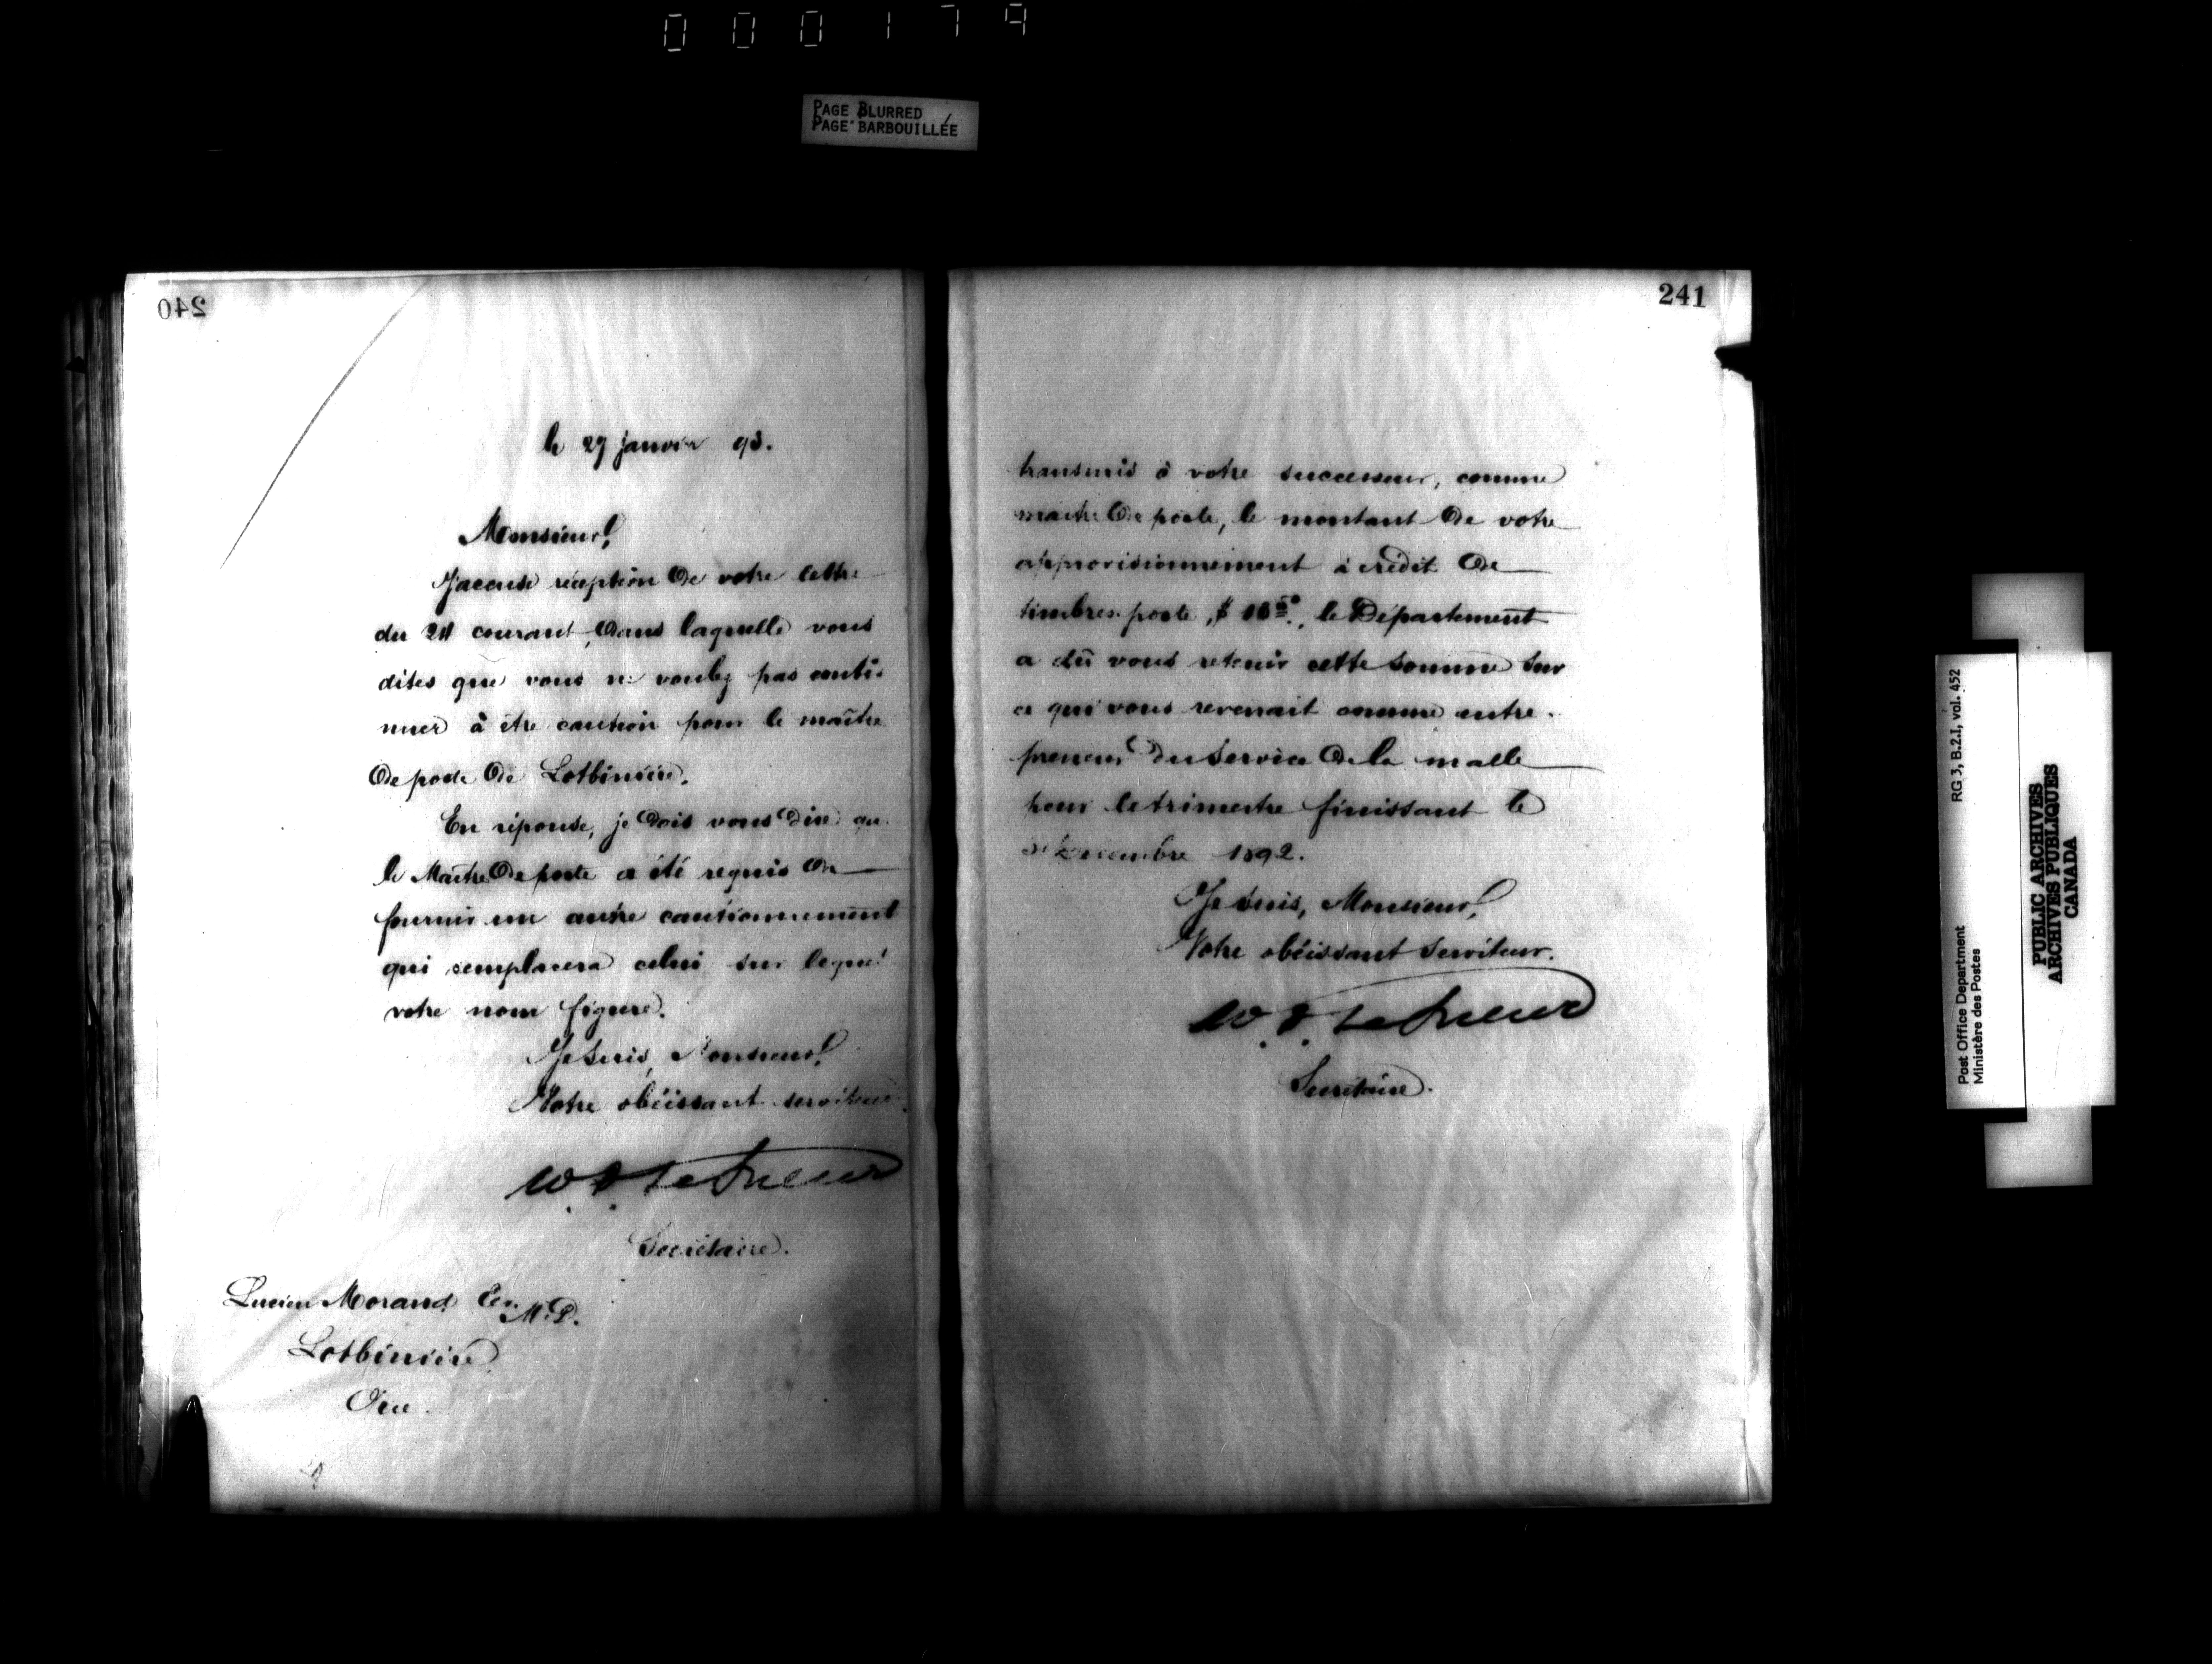 000179
PAGE BLURRED
PAGE BARBOUILLÉE
240
le 27 janvier 93.
Monsieur,
J'accuse réception de votre lettre
du 24 courant, dans laquelle vous
dites que vous ne voulez pas conti-
nuer à être caution pour le maître
de poste de Lotbinière.
En réponse, je dois vous dire que
le Maître de poste a été requis de
fournir un autre cautionnement
qui remplacera celui sur lequel
votre nom figure.
Je suis, Monsieur,
Votre obéissant serviteur.
W. D. LeSueur
Secrétaire.
Lucien Morand Ecr. M.P.
Lotbinière
Que.
241
transmis à votre successeur, comme
maître de poste, le montant de votre
approvisionnement à crédit de
timbres-poste, $, le Département
a dû vous retenir cette somme sur
ce qui vous revenait comme entre-
preneur du service de la malle
pour le trimestre finissant le
31 décembre 1892.
Je suis, Monsieur,
Votre obéissant Serviteur.
W. D. LeSueur
Secrétaire.
Post Office Department
Ministère des Postes
RG 3, B.2.I, vol. 452
PUBLIC ARCHIVES
ARCHIVES PUBLIQUES
CANADA